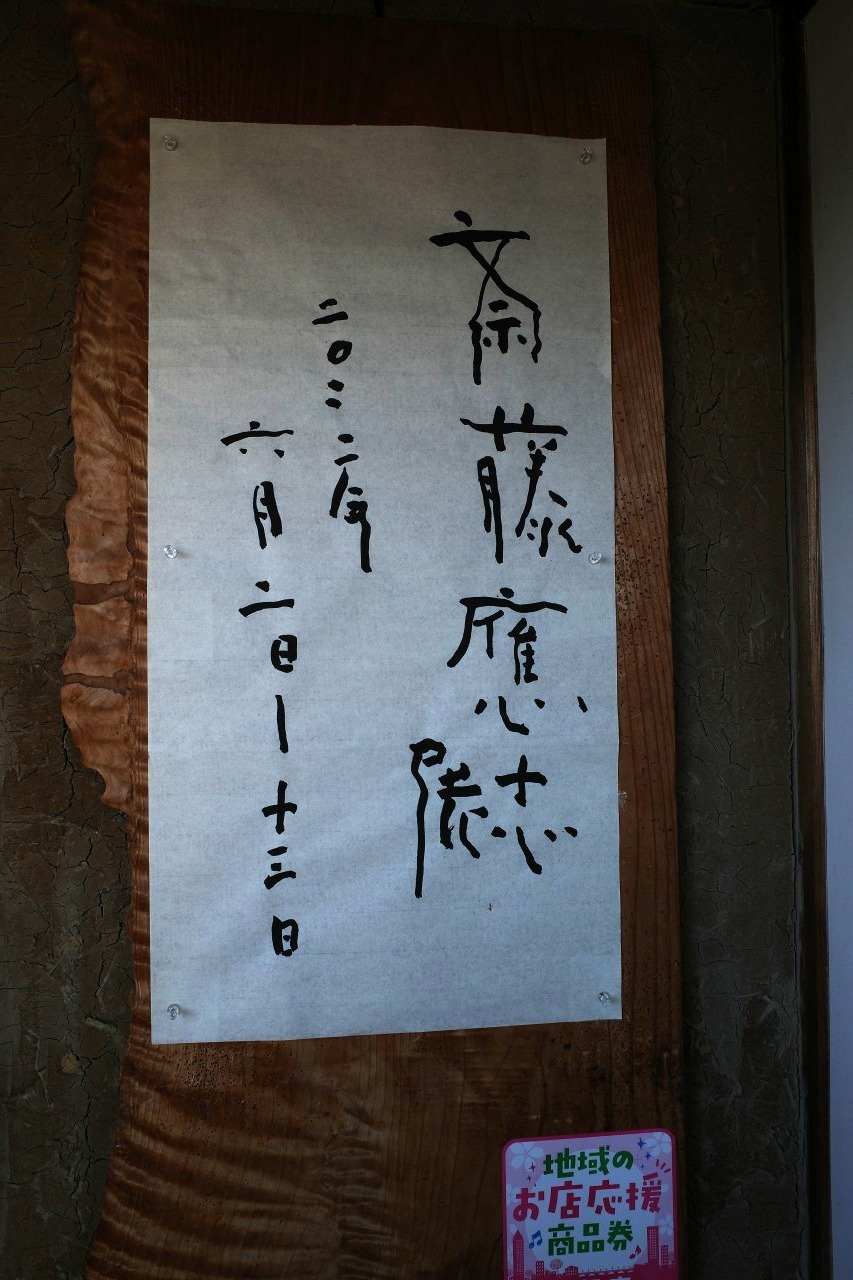 斎藤應志展
二〇二二年
六月二日ー十三日
地域の
お店応援
商品券